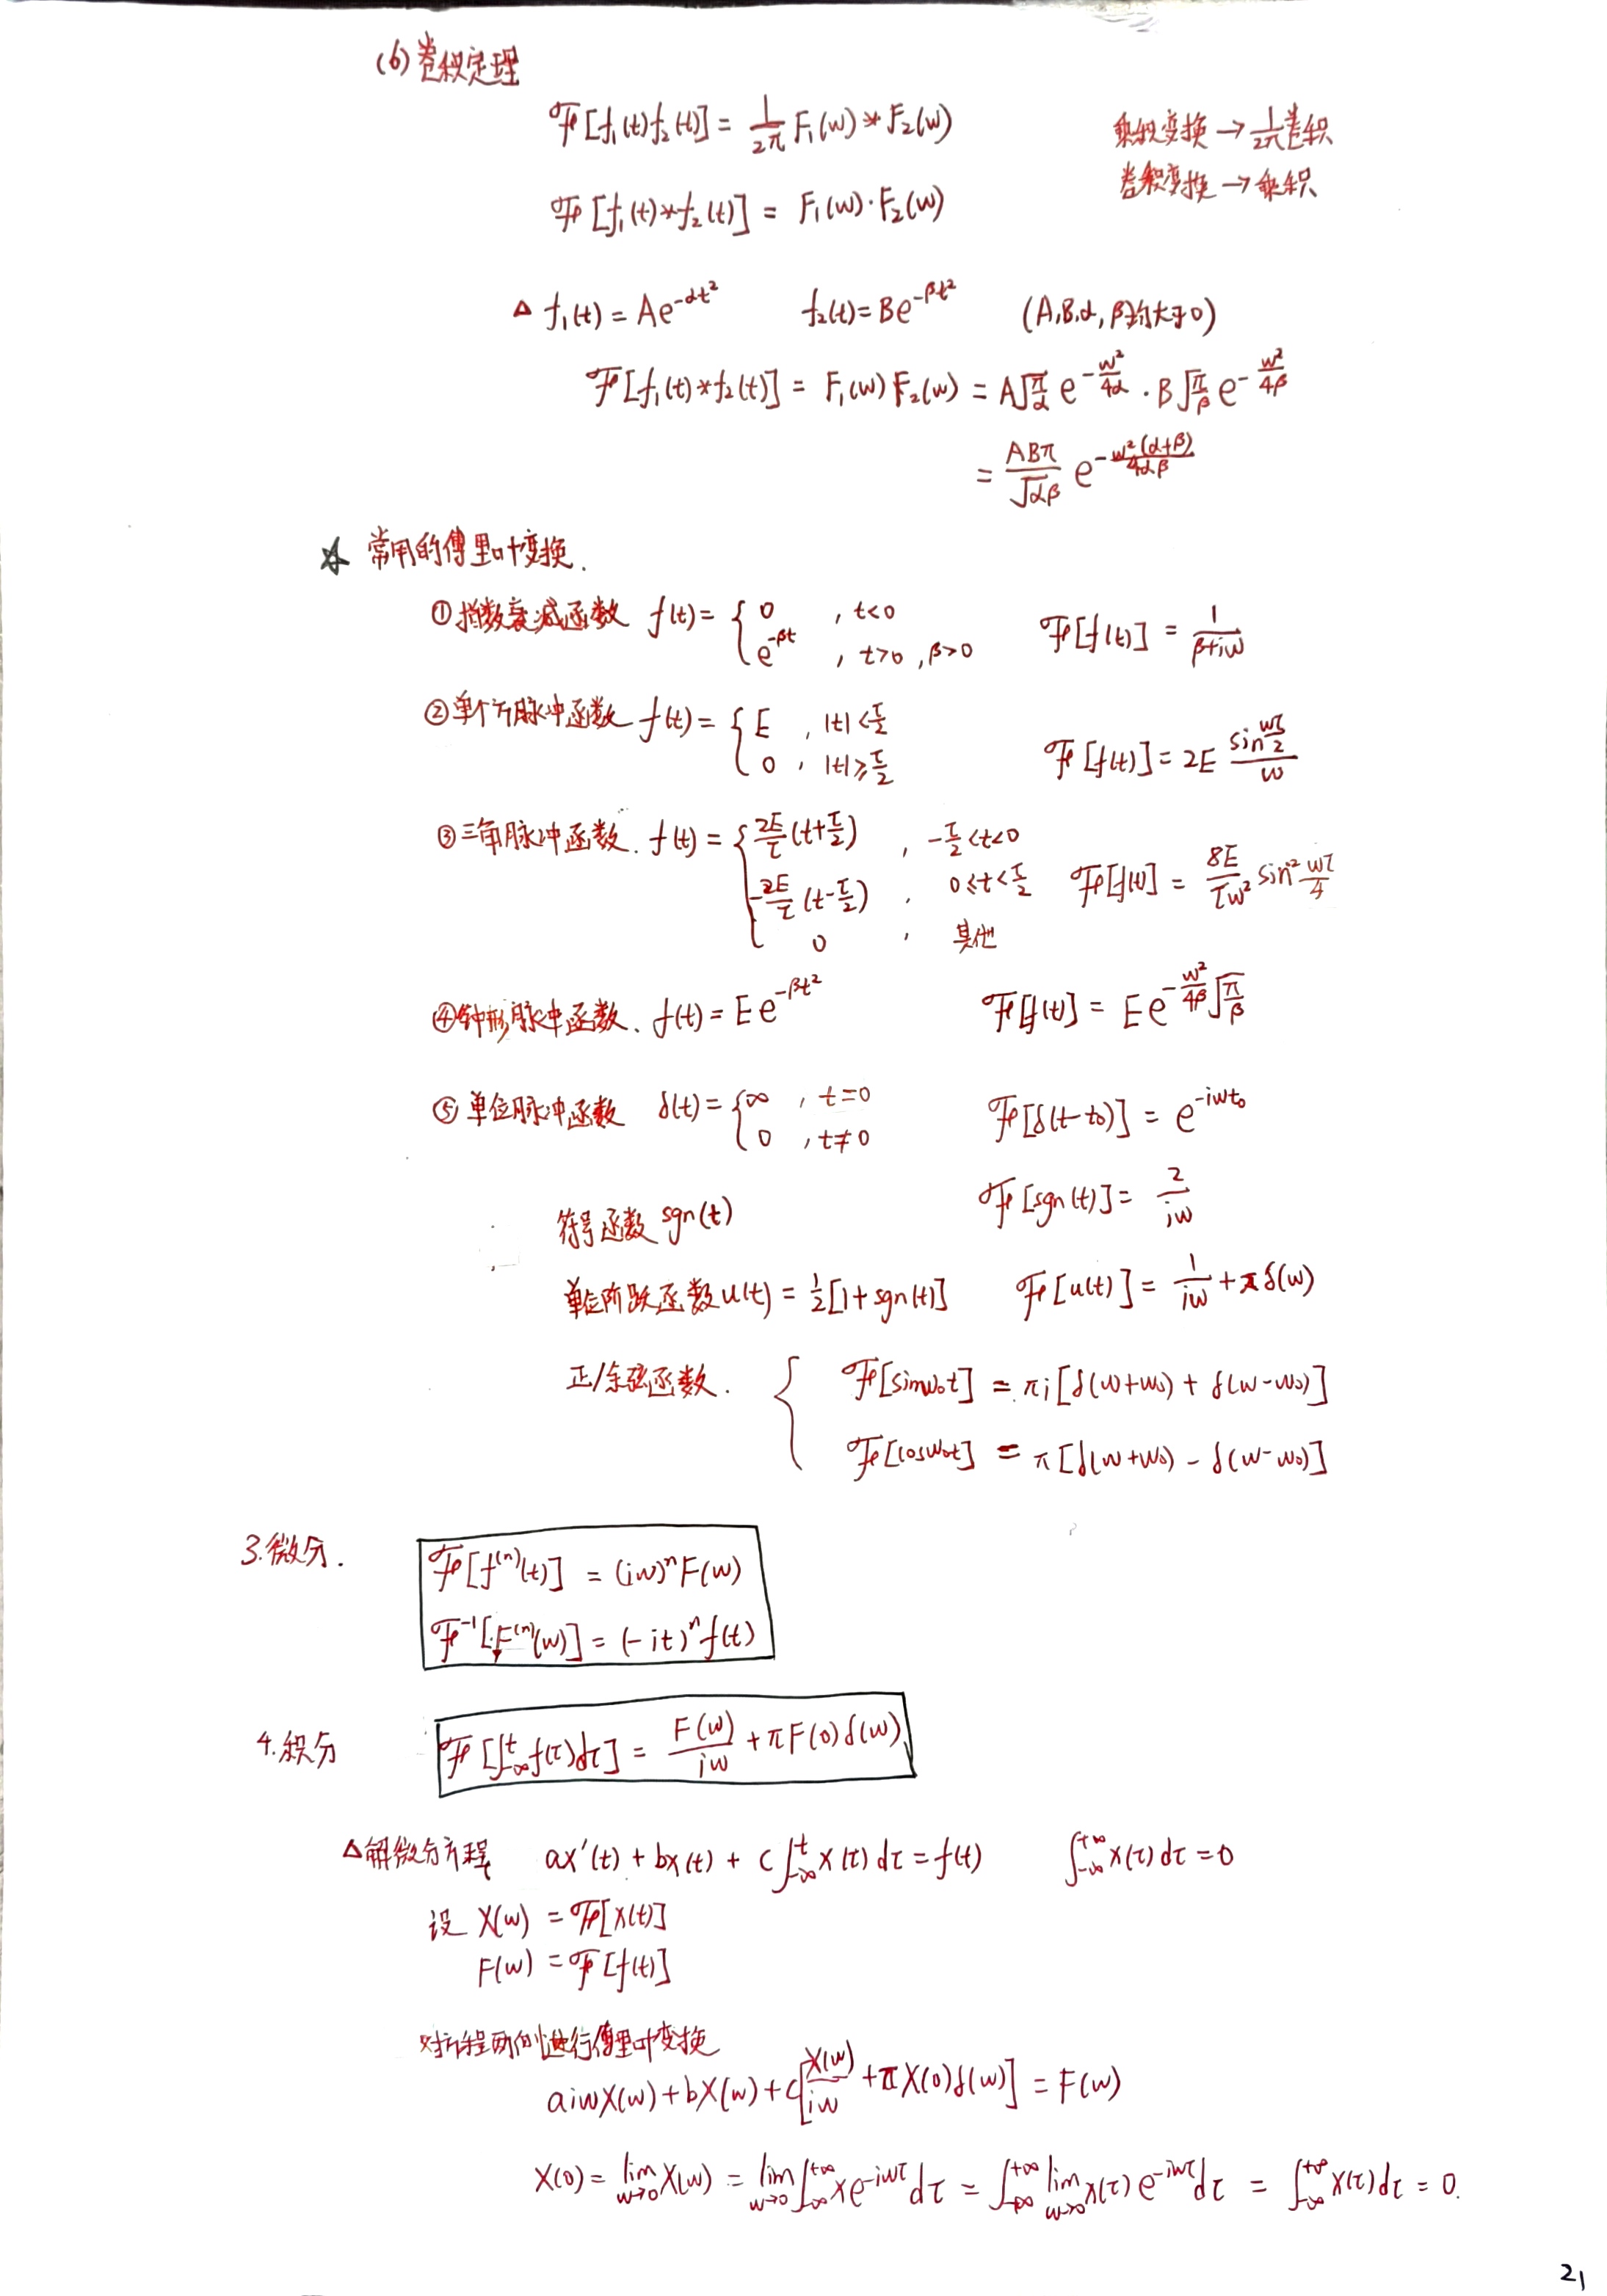 (6) 卷积定理
ℱ[f₁(t)f₂(t)] = 1/2π F₁(w) * F₂(w)
乘积变换 → 1/2π 卷积
ℱ[f₁(t)*f₂(t)] = F₁(w)·F₂(w)
卷积变换 → 乘积
△ f₁(t) = Ae^(-αt²) f₂(t) = Be^(-βt²) (A,B,α,β均大于0)
ℱ[f₁(t)*f₂(t)] = F₁(w)F₂(w) = A√(π/α) e^(-w²/4α) · B√(π/β) e^(-w²/4β)
= ABπ/√(αβ) e^(-w²(α+β)/4αβ)
☆ 常用的傅里叶变换.
① 指数衰减函数 f(t) = { 0 , t<0
e^(-βt) , t>0 , β>0 ℱ[f(t)] = 1/(β+iw)
② 单个方脉冲函数 f(t) = { E , |t|<τ/2
0 , |t|≥τ/2 ℱ[f(t)] = 2E sin(wτ/2)/w
③ 三角脉冲函数. f(t) = { 2E/τ (t+τ/2) , -τ/2<t<0
-2E/τ (t-τ/2) , 0≤t<τ/2 ℱ[f(t)] = 8E/τw² sin² wτ/4
0 , 其他
④ 钟形脉冲函数. f(t) = Ee^(-βt²) ℱ[f(t)] = Ee^(-w²/4β) √(π/β)
⑤ 单位脉冲函数 δ(t) = { ∞ , t=0
0 , t≠0 ℱ[δ(t-t₀)] = e^(-iwt₀)
符号函数 sgn(t) ℱ[sgn(t)] = 2/iw
单位阶跃函数 u(t) = 1/2[1+sgn(t)] ℱ[u(t)] = 1/iw + πδ(w)
正/余弦函数. { ℱ[sinw₀t] = πi[δ(w+w₀) + δ(w-w₀)]
ℱ[cosw₀t] = π[δ(w+w₀) - δ(w-w₀)]
3.微分. ℱ[f⁽ⁿ⁾(t)] = (iw)ⁿF(w)
ℱ⁻¹[F⁽ⁿ⁾(w)] = (-it)ⁿf(t)
4.积分 ℱ[∫_{-∞}^{t} f(τ)dτ] = F(w)/iw + πF(0)δ(w)
△解微分方程 ax'(t) + bx(t) + c∫_{-∞}^{t} x(τ)dτ = f(t) ∫_{-∞}^{+∞} x(τ)dτ = 0
设 X(w) = ℱ[x(t)]
F(w) = ℱ[f(t)]
对方程两侧进行傅里叶变换
aiwX(w) + bX(w) + c[X(w)/iw + πX(0)δ(w)] = F(w)
X(0) = lim_{w→0} X(w) = lim_{w→0} ∫_{-∞}^{+∞} xe^(-iwτ)dτ = ∫_{-∞}^{+∞} lim_{w→0} x(τ)e^(-iwτ)dτ = ∫_{-∞}^{+∞} x(τ)dτ = 0.
21